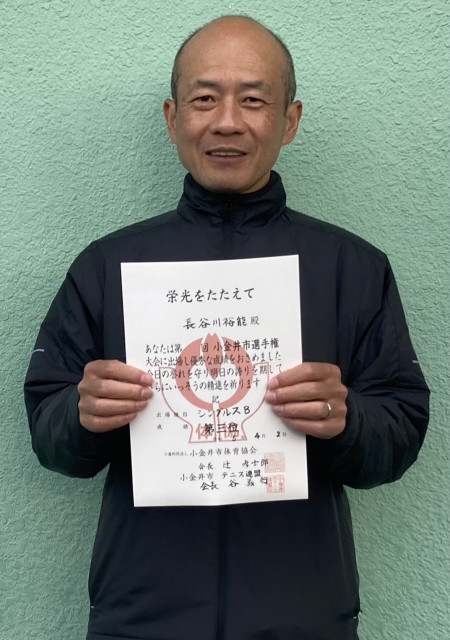 栄光をたたえて
長谷川裕能殿
あなたは第 回小金井市選手権
大会に出場し優秀な成績をおさめました
今日の誉れを守り明日の誇りを期して
さらにいっそうの精進を祈ります
記
出場種目 シングルスB
成績 第三位
4月2日
小金井市体育協会
会長 辻
小金井市 テニス連盟
会長 谷 義